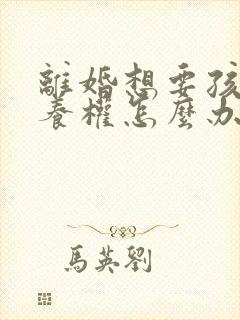 離婚想要孩
養權怎麼办
馬英劉